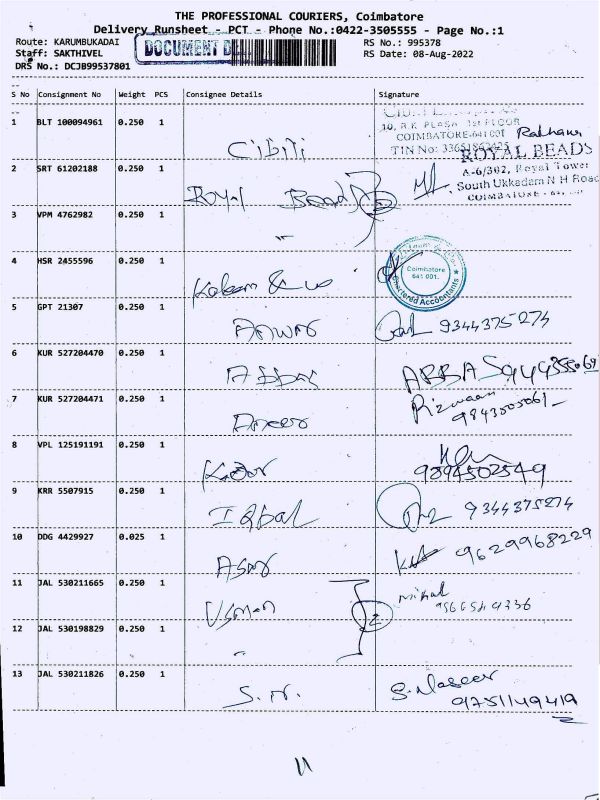 THE PROFESSIONAL COURIERS, Coimbatore
Delivery Runsheet - PCT - Phone No.:0422-3505555 - Page No.:1
Route: KARUMBUKADAI RS No.: 995378
Staff: SAKTHIVEL DOCUMENT RS Date: 08-Aug-2022
DRS No.: DCJB99537801
S No Consignment No Weight PCS Consignee Details Signature
1 BLT 100094961 0.250 1
10, R.K PLASA 1st FLOOR
COIMBATORE-641 001
TIN No:
2 SRT 61202188 0.250 1 Royal Bead ROYAL BEADS
A-6/302, Royal Tower
South Ukkadam N H Road
COIMBATORE
3 VPM 4762982 0.250 1 "
4 HSR 2455596 0.250 1 Kalam & co Coimbatore 641 001. Chartered Accountants
5 GPT 21307 0.250 1 Anwar 9344375274
6 KUR 527204470 0.250 1 Abbas ABBAS
7 KUR 527204471 0.250 1 Rizwaan
9843505061
8 VPL 125191191 0.250 1 Kadar
9894502549
9 KRR 5507915 0.250 1 Iqbal 9344375274
10 DDG 4429927 0.025 1 9629968229
11 JAL 530211665 0.250 1 Usman
12 JAL 530198829 0.250 1 " 2
13 JAL 530211826 0.250 1 S. N. S. Naseer
9751149419
11